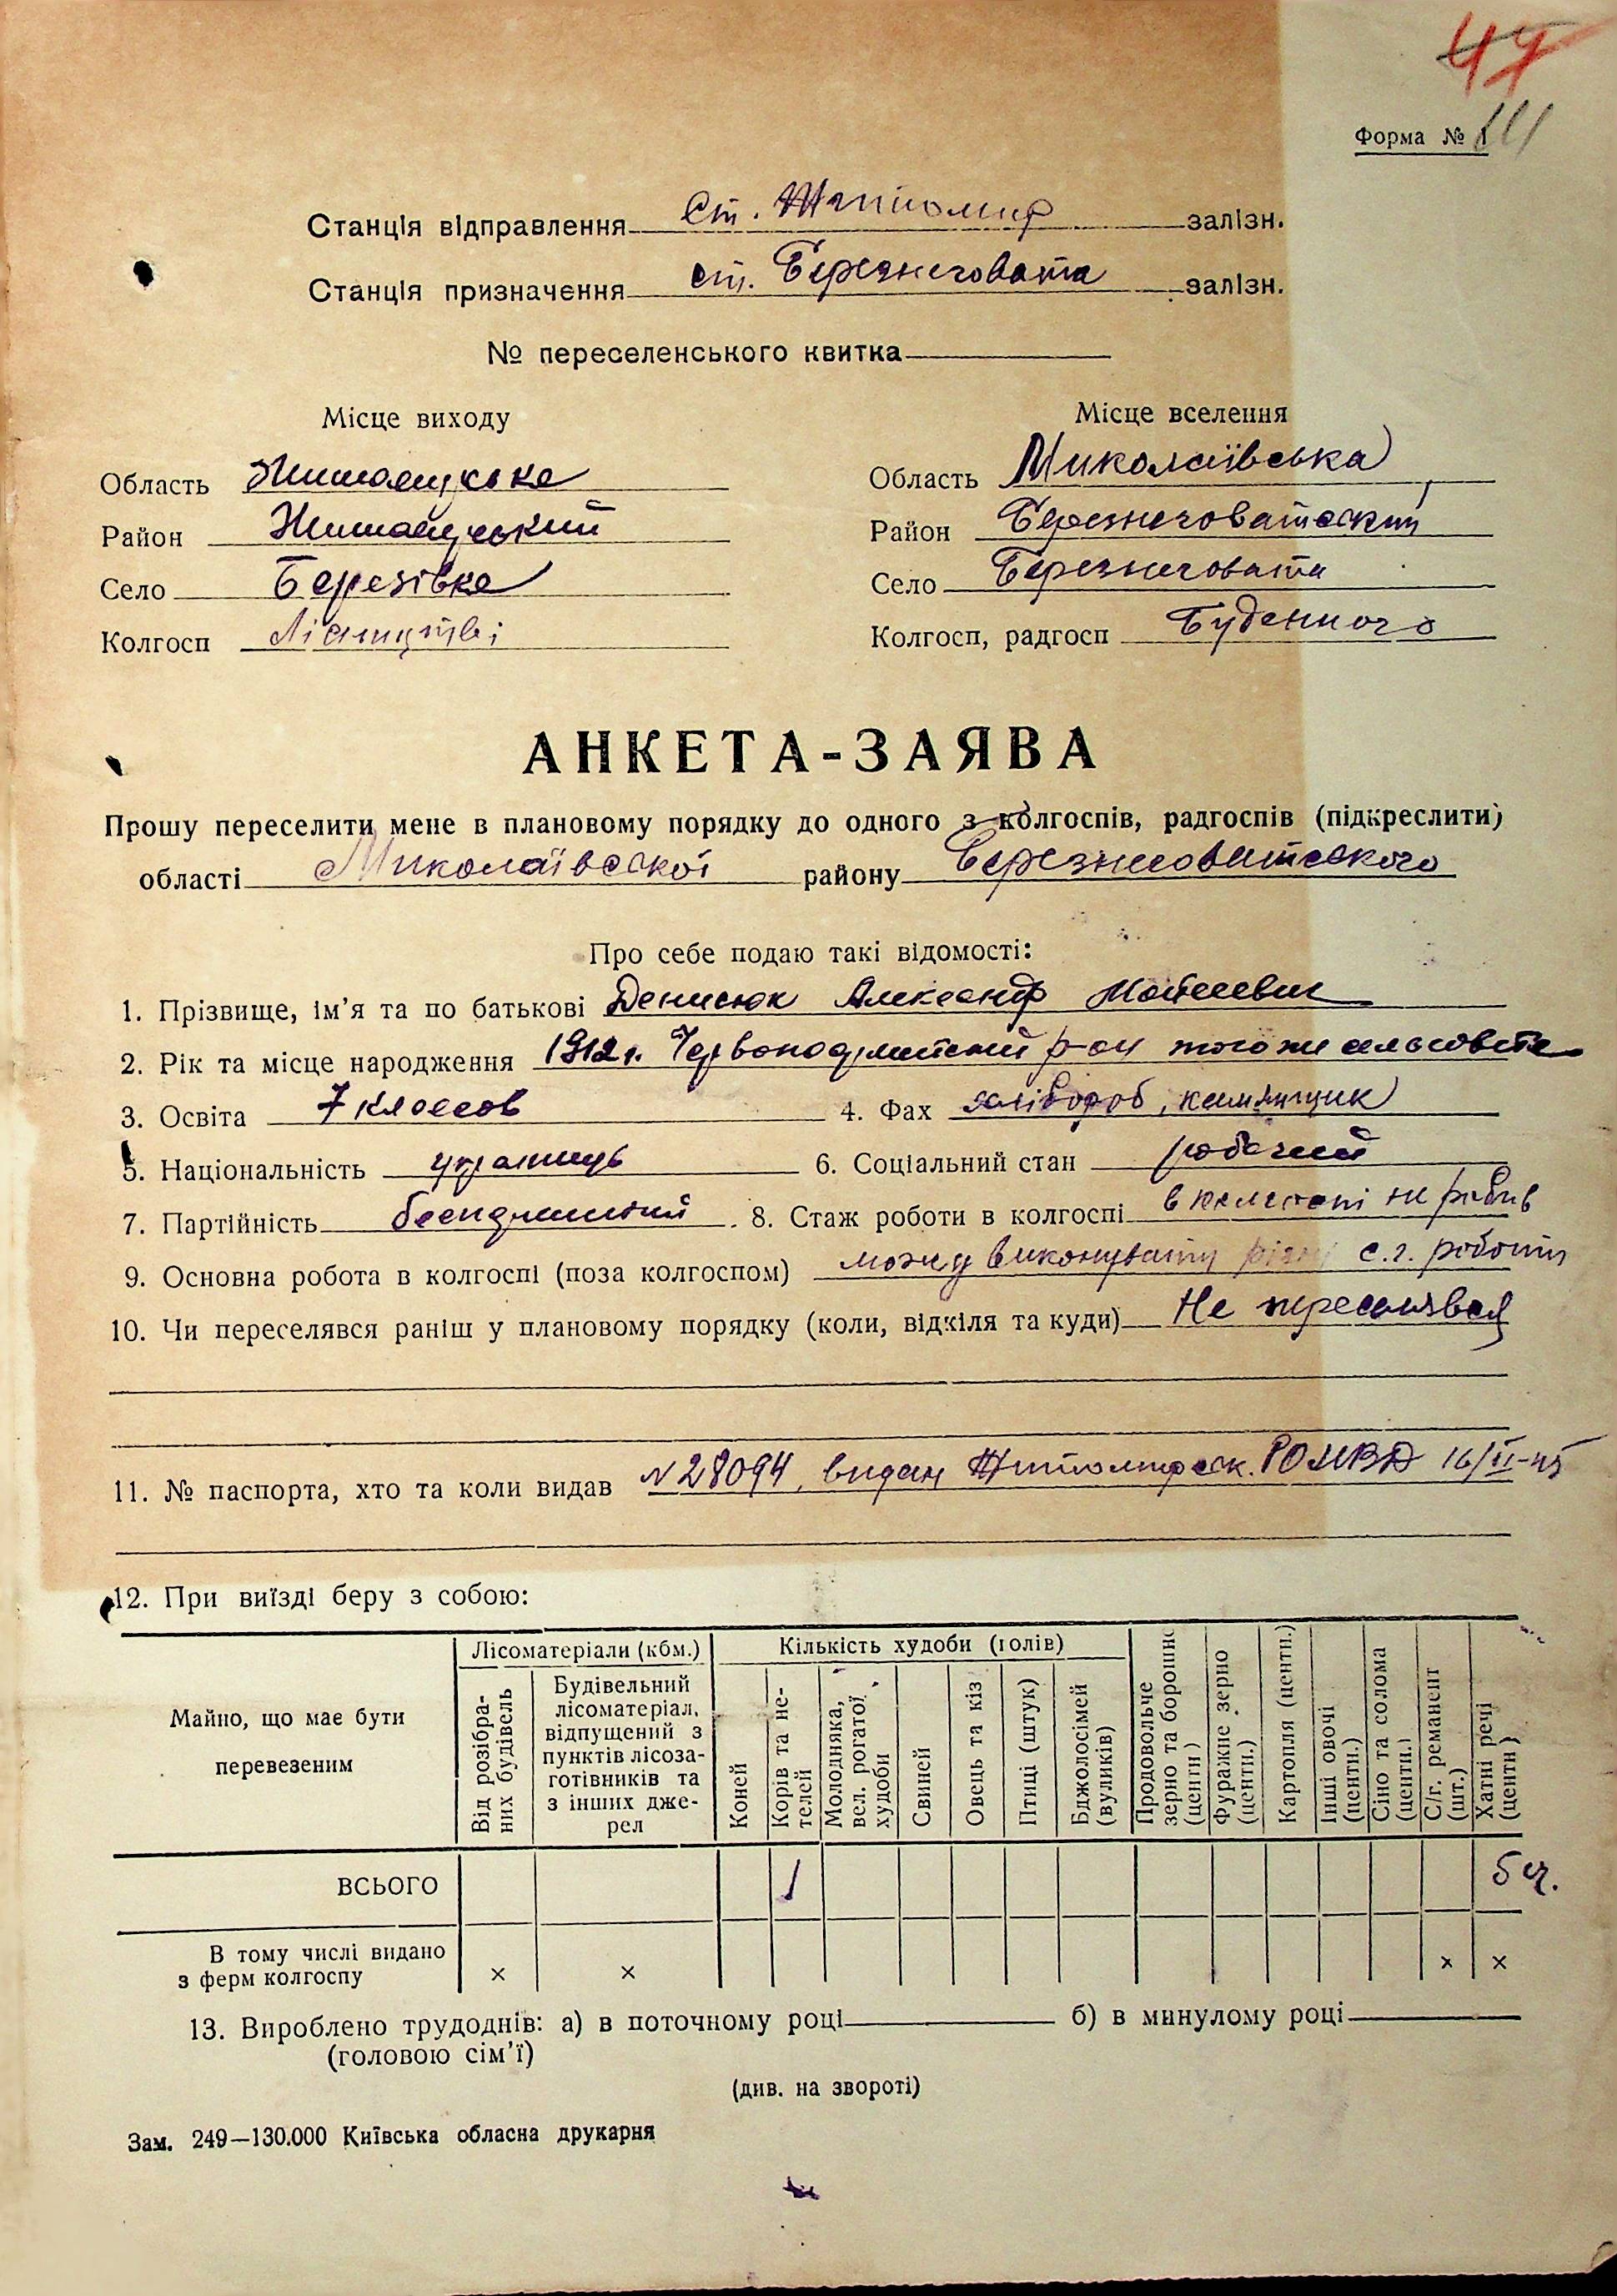 47
Форма № 1
Станція відправлення ст. Житомир залізн.
Станція призначення ст. Березнеговата залізн.
№ переселенського квитка
Місце виходу
Місце вселення
Область Житомирська
Область Миколаївська
Район Житомирський
Район Березнеговатський
Село Березівка
Село Березнеговата
Колгосп
Колгосп, радгосп Буденного
АНКЕТА-ЗАЯВА
Прошу переселити мене в плановому порядку до одного з колгоспів, радгоспів (підкреслити)
області Миколаївської району Березнеговатського
Про себе подаю такі відомості:
1. Прізвище, ім'я та по батькові Денисюк Александр
2. Рік та місце народження 1912 г. р-он
3. Освіта 7 классов 4. Фах хлібороб,
5. Національність українець 6. Соціальний стан рабочий
7. Партійність 8. Стаж роботи в колгоспі в колгоспі не робив
9. Основна робота в колгоспі (поза колгоспом) можу виконувати різну с.г. роботу
10. Чи переселявся раніш у плановому порядку (коли, відкіля та куди) Не переселявся
11. № паспорта, хто та коли видав № 28094, видан Житомирск. РОМВД
12. При виїзді беру з собою:
Майно, що має бути перевезеним
Лісоматеріали (кбм.)
Кількість худоби (голів)
Від розібраних будівель
Будівельний лісоматеріал, відпущений з пунктів лісозаготівників та з інших джерел
Коней
Корів та нетелей
Молодняка, вел. рогатої худоби
Свиней
Овець та кіз
Птиці (штук)
Бджолосімей (вуликів)
Продовольче зерно та борошно (центн)
Фуражне зерно (центн.)
Картопля (центн.)
Інші овочі (центн.)
Сіно та солома (центн.)
С/г. реманент (шт.)
Хатні речі (центн)
ВСЬОГО 1 5 ц.
В тому числі видано
з ферм колгоспу × × × ×
13. Вироблено трудоднів: а) в поточному році б) в минулому році
(головою сім'ї)
(див. на звороті)
Зам. 249—130.000 Київська обласна друкарня